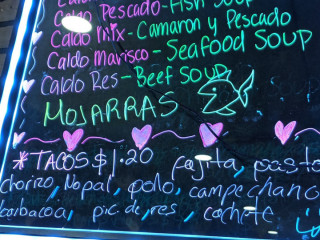 Caldo Pescado-Fish Soup
Caldo Mix-Camaron y Pescado
Caldo Marisco-Seafood SOUP
Caldo Res-Beef SOUP
MOJARRAS
*TACOS $1.20 fajita, pasto
chorizo, Nopal, pollo, campechano
barbacoa, pic.de,res,